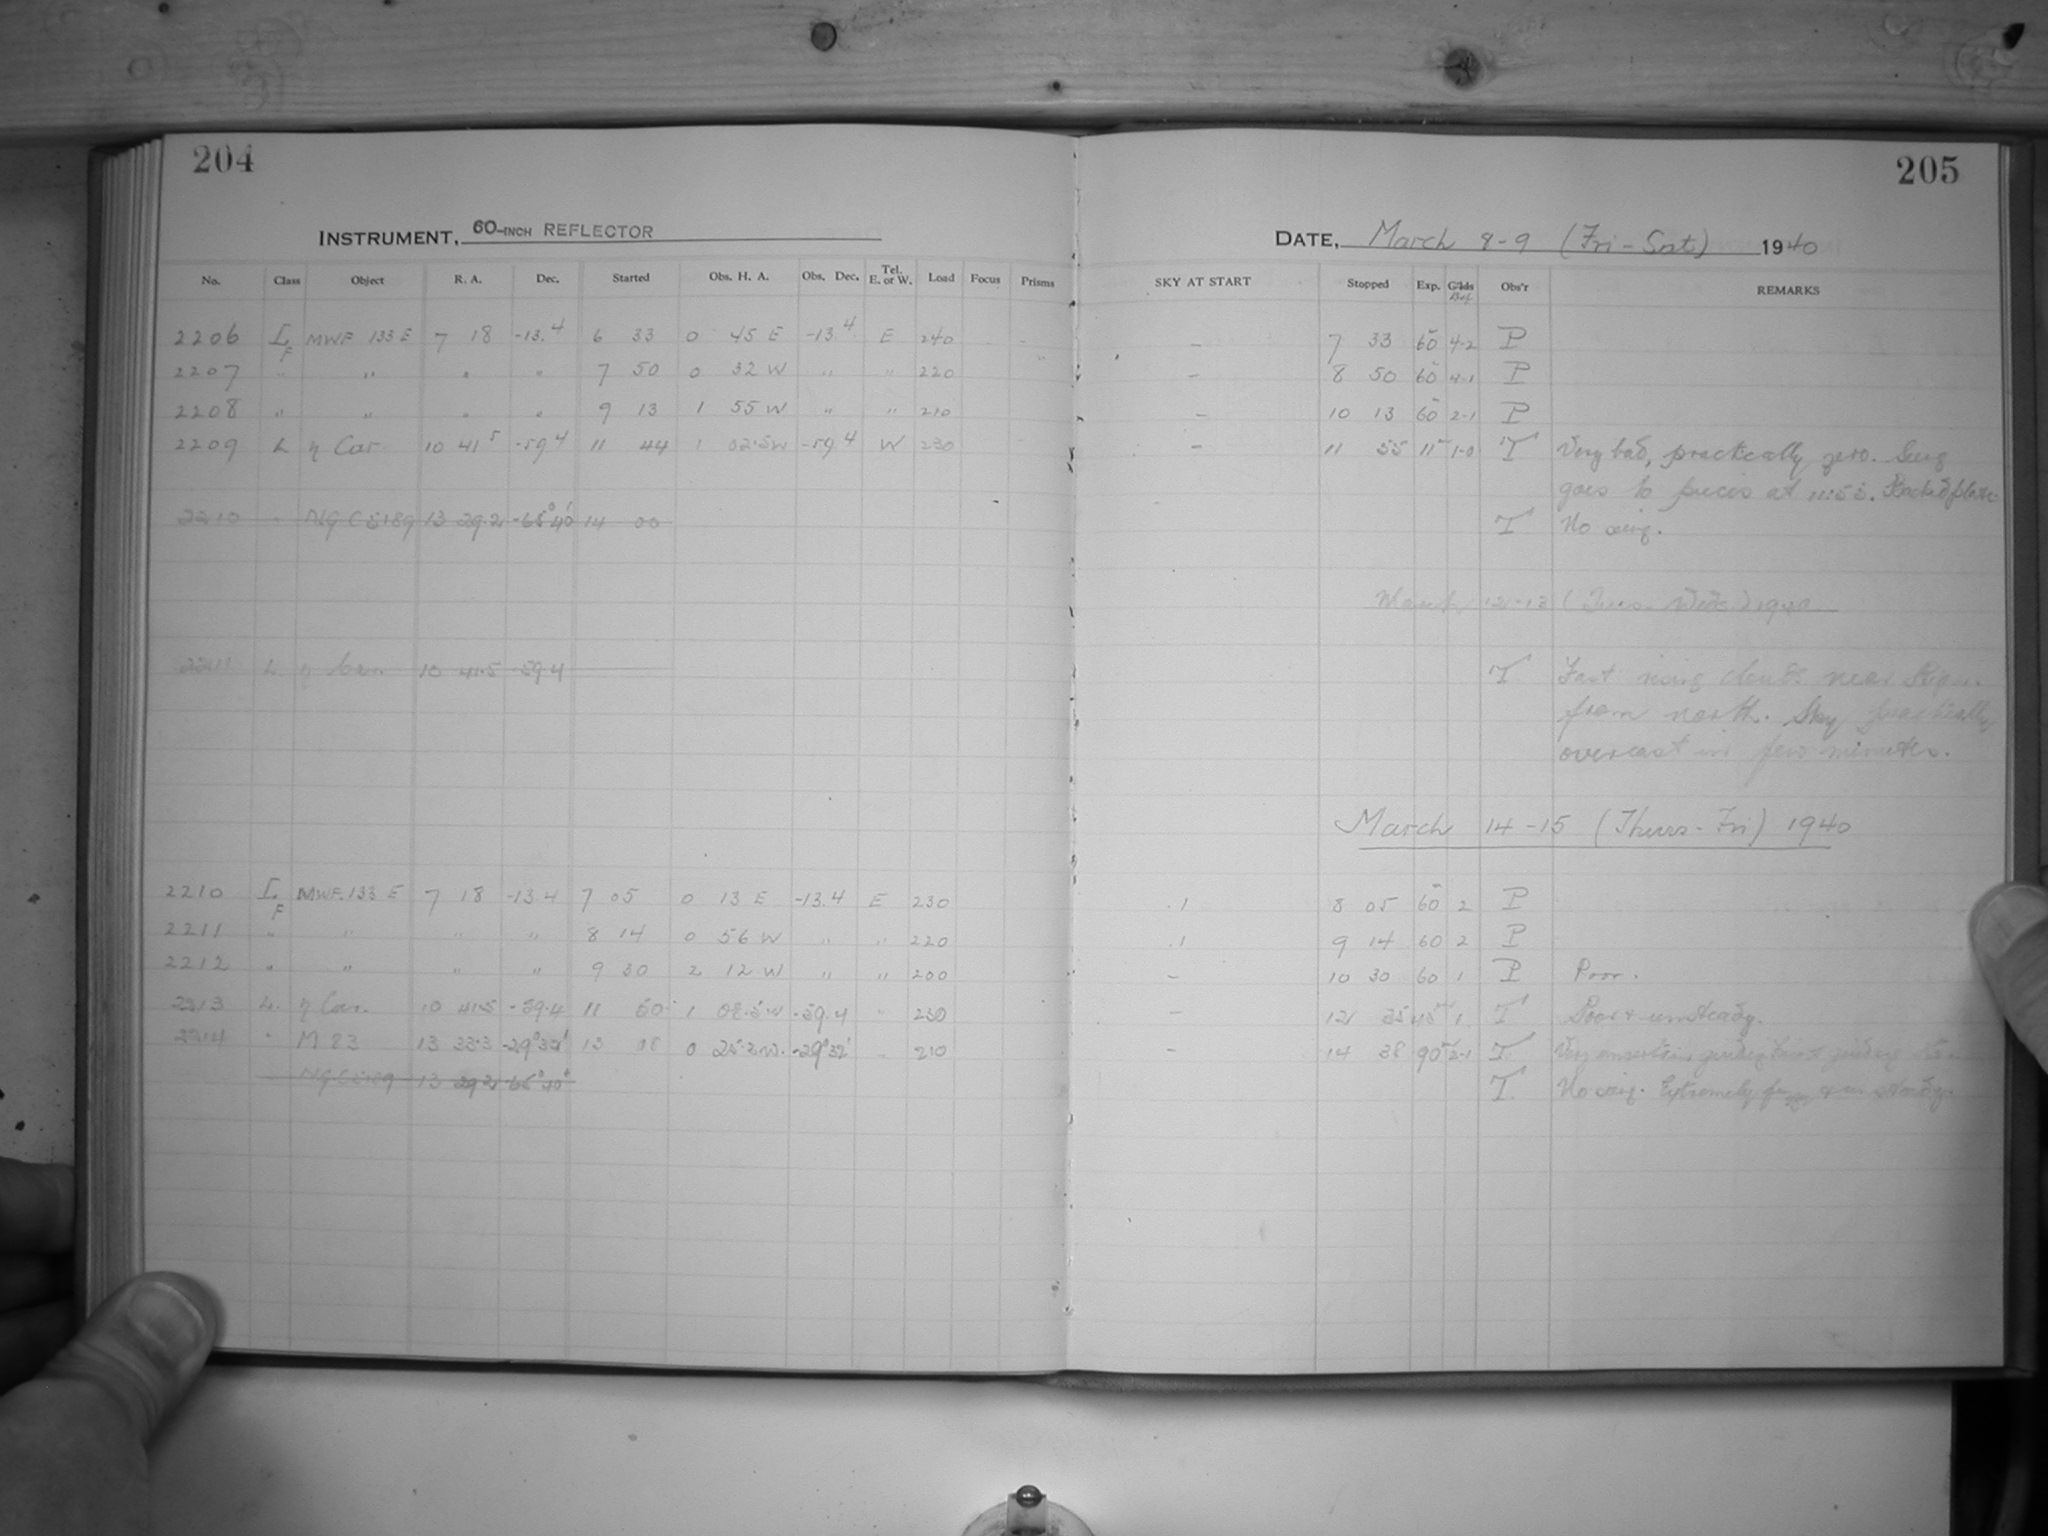 204
205
INSTRUMENT, 60-INCH REFLECTOR
DATE, March 8-9 (Fri-Sat) 1940
No. Class Object R. A. Dec. Started Obs. H. A. Obs. Dec. Tel. E. or W. Load Focus Prisms SKY AT START Stopped Exp. G'lds Def. Obs'r REMARKS
2206 I F MWF 133 E 7 18 -13.4 6 33 0 45 E -13.4 E 240 - 7 33 60 4-2 P
2207 " " " " 7 50 0 32 W " " 220 - 8 50 60 4-1 P
2208 " " " " 9 13 1 55 W " " 210 - 10 13 60 2-1 P
2209 L η Car. 10 41.5 -59.4 11 44 1 02.5W -59.4 W 230 - 11 55 11 1-0 T Very bad, practically zero. Seeing
goes to pieces at 11:55.
2210 " NGC 5189 13 29.2 -65°40' 14 00 T No seeing.
March 12-13 (Tues. Weds.) 1940
2211 L. η Car. 10 41.5 -59.4 T Fast clouds near
from north. Sky practically
overcast in few minutes.
March 14-15 (Thurs-Fri) 1940
2210 I F MWF.133 E 7 18 -13.4 7 05 0 13 E -13.4 E 230 .1 8 05 60 2 P
2211 " " " " 8 14 0 56 W " " 220 .1 9 14 60 2 P
2212 " " " " 9 30 2 12 W " " 200 - 10 30 60 1 P Poor.
2213 L. η Car. 10 41.5 -59.4 11 50 1 08.5 W -59.4 " 230 - 12 35 45 1 T Poor & unsteady.
2214 " M 83 13 33.3 -29°32' 13 08 0 25.3 W. -29°32' " 210 - 14 38 90 2-1 T Very guiding
" NGC 5189 13 29.2 -65°40' T. No seeing. Extremely